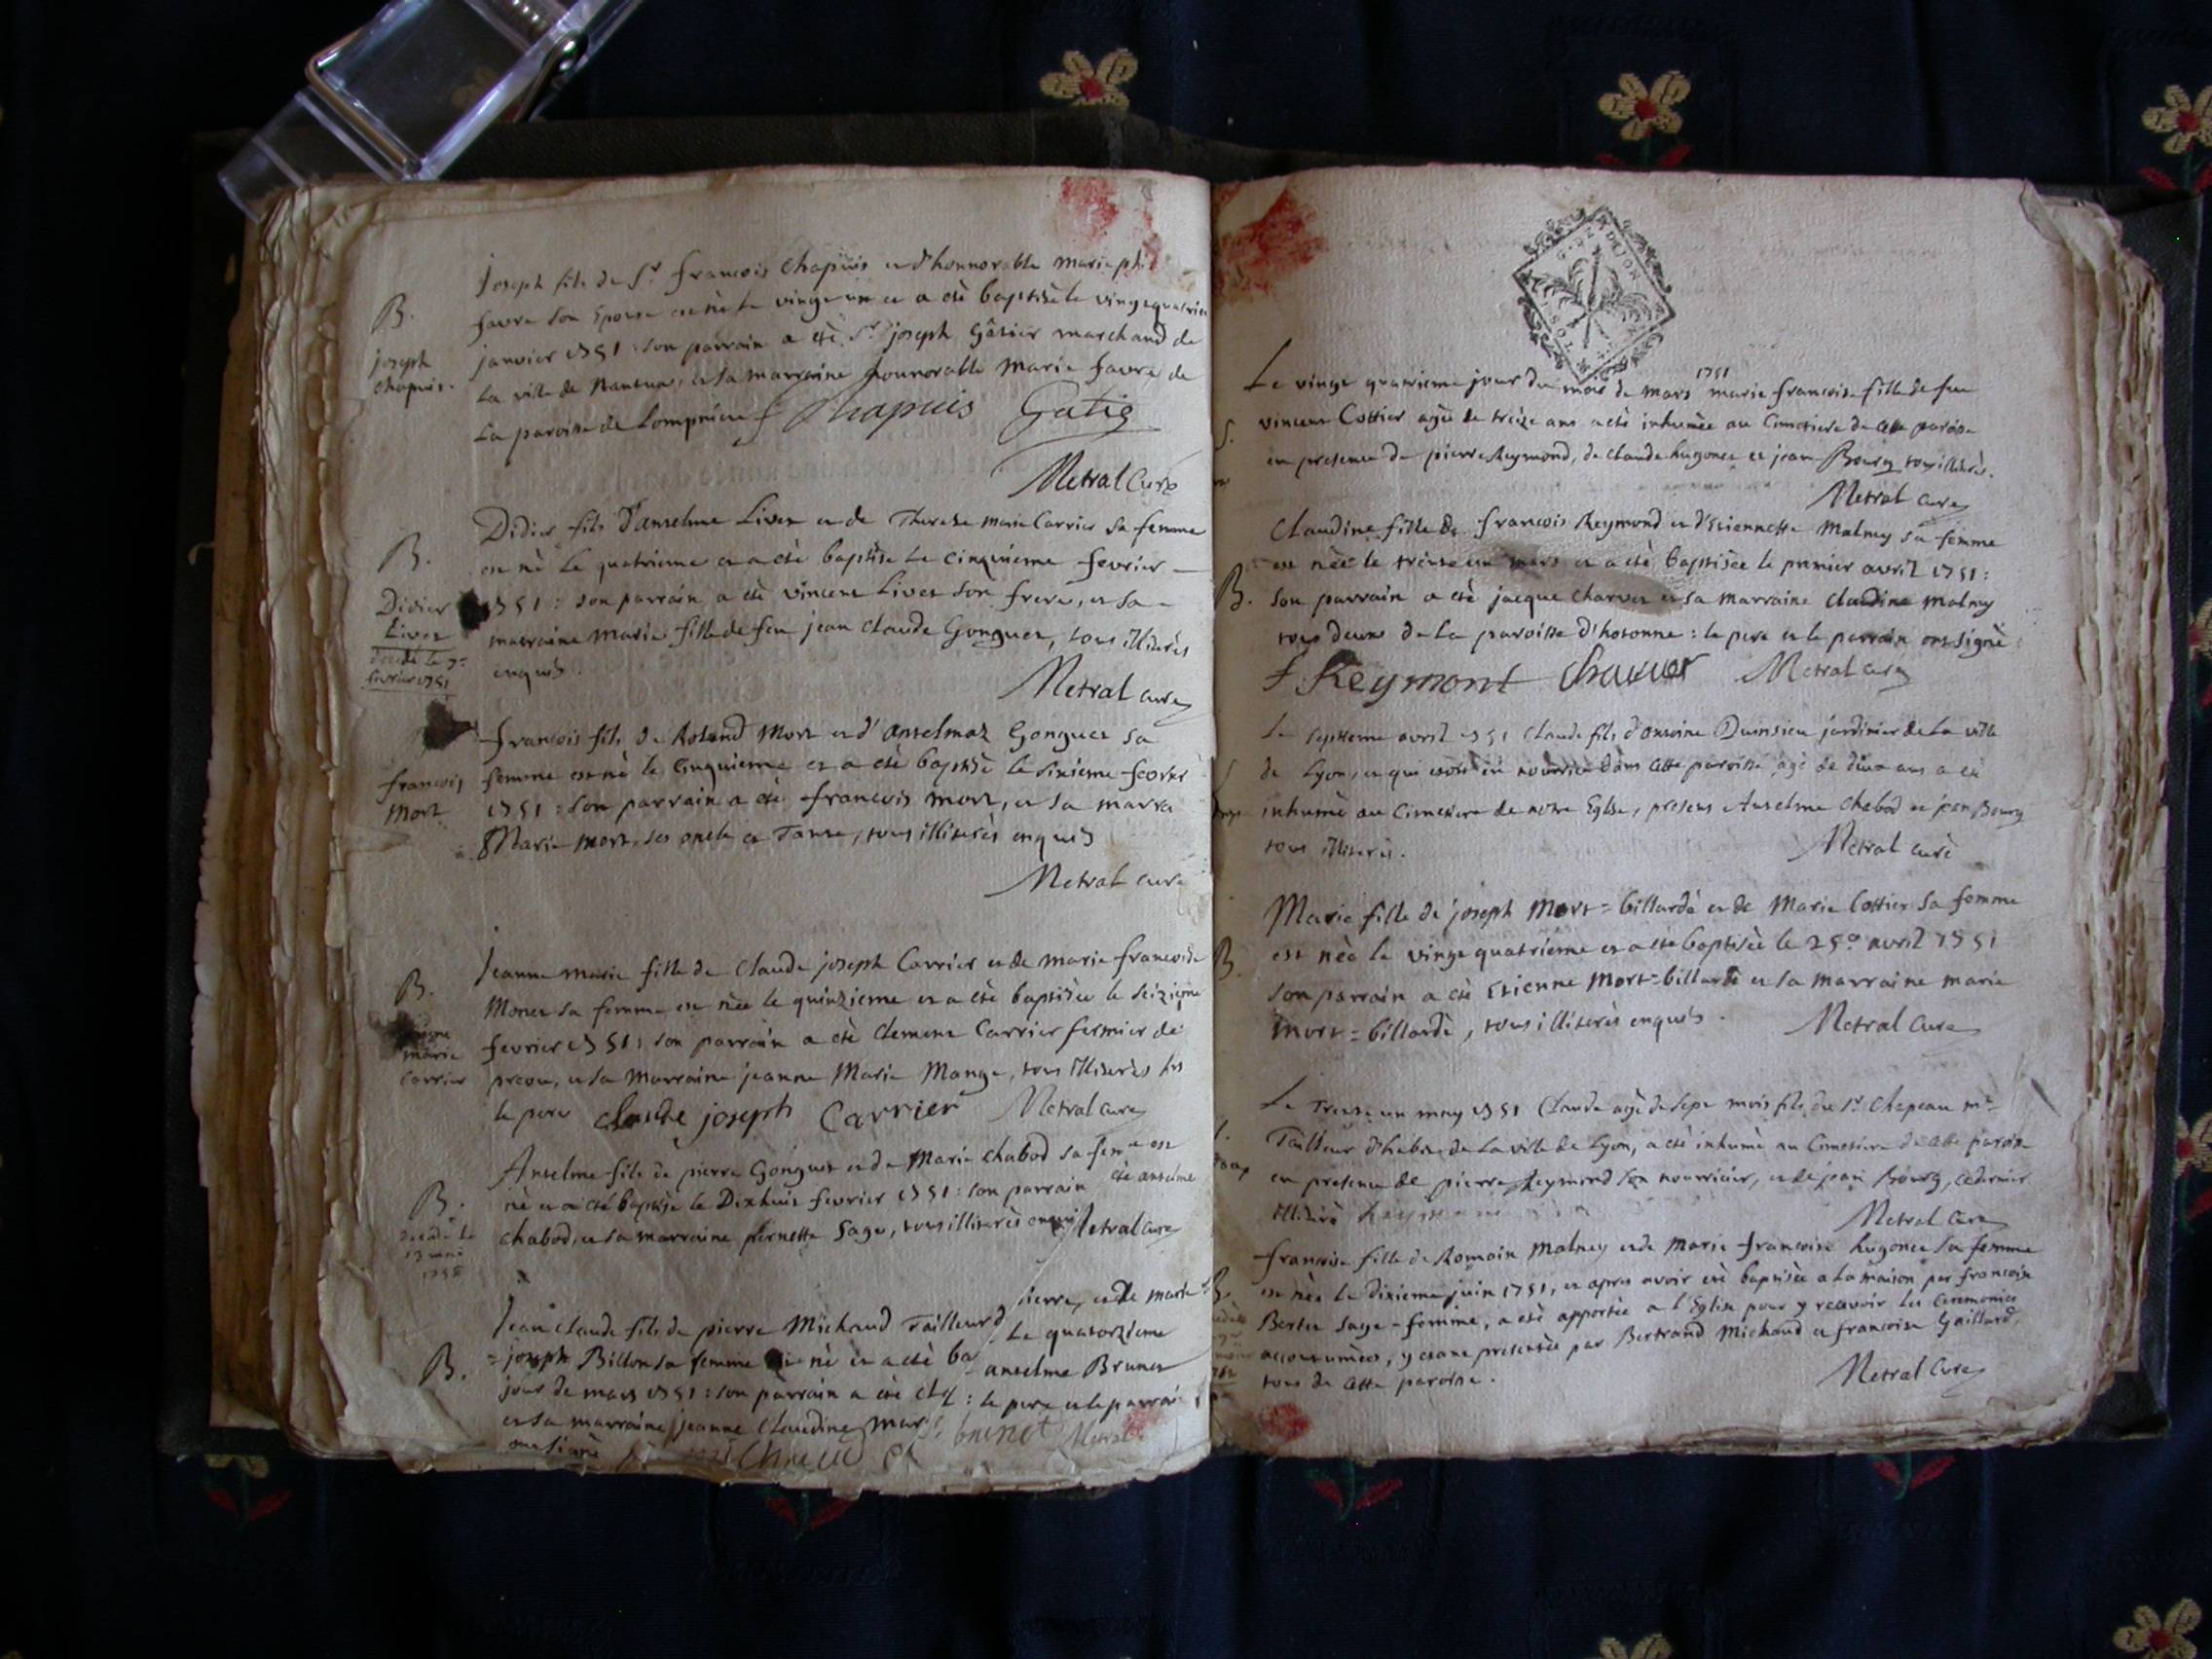 Joseph fils de Sr francois Chapuis et d'honnorable marie
favre son Epouse est né le vingt un et a eté baptisé le vingtquatrie
B.
joseph
chapuis.
janvier 1751 : son parrain a eté Sr joseph Gâtier marchand de
La ville de Nantua, et sa marraine honnorable Marie favre de
La paroisse de
Chapuis Gatie
Metral Curé
Didier fils d'anselme Livet et de Therese marie Carrier sa femme
est né Le quatrieme et a eté baptisé Le Cinquieme fevrier
B.
Didier
Livet
decedé le
fevrier 1751
1751 : son parrain a eté vincent Livet son frere, et sa
marraine Marie fille de feu jean claude Gonguet, tous illiterés
enquis.
Metral curé
francois fils de Roland Mort et d'anselmaz Gonguet sa
femme est né le Cinquieme et a eté baptisé le sixieme fevrier
francois
Mort
1751 : son parrain a eté francois mort, et sa marra
Marie mort, ses oncle et Tante, tous illiterés enquis
Metral curé
Jeanne marie fille de Claude joseph Carrier et de marie francoise
Monet sa femme est née le quinzieme et a eté baptisée le seizieme
B.
marie
Carrier
fevrier 1751 ; son parrain a eté Clement Carrier fermier de
et sa Marraine jeanne Marie Mange, tous illiterés
le pere claude joseph Carrier Metral curé
Anselme fils de pierre Gonguet et de Marie chabod sa fem est
né et a eté baptisé le Dixhuit fevrier 1751 : son parrain eté anselme
B.
decedé le
13 mai
chabod, et sa marraine pernette Sage, tous illiterés enquis Metral curé
Jean claude fils de pierre Michaud Tailleur d pierre, et de marie
joseph Billon sa femme est né et a eté ba Le quatorzieme
B.
jour de mars 1751 : son parrain a eté anselme Brunet
et sa marraine jeanne Claudine : le pere et le parrain
ont signé michaud brunet Metral
Le vingt quatrieme jour du mois de mars 1751 marie francoise fille de feu
vincent Cottier agée de treize ans a eté inhumée au Cimetiere de cette paroisse
en presence de pierre Reymond, de claude hugonet et jean Bourg tous illiterés.
Metral curé
Claudine fille de francois Reymond et d'Etiennette Malney sa femme
est née le trente un mars et a eté baptisée le premier avril 1751 :
B. son parrain a eté jacque charvet et sa marraine claudine malney
tous deux de La paroisse d'hotonne : le pere et le parrain ont signé
f. Reymont charvet Metral curé
Le septieme avril 1751 Claude fils d'antoine jardinier de La ville
de Lyon, et qui etoit en nourrice dans cette paroisse agé de deux ans a eté
inhumé au Cimetiere de notre Eglise, presens Anselme Chabod et jean Bourg
tous illiterés. Metral curé
Marie fille de joseph Mort=billarde et de Marie Cottier sa femme
B. est née le vingt quatrieme et a eté baptisée le 25e avril 1751
son parrain a eté Etienne Mort=billarde et sa marraine marie
mort=billarde, tous illiterés enquis. Metral Curé
Le Trente un may 1751 Claude agé de sept mois fils du Sr Chapeau me
Tailleur d'habits de La ville de Lyon, a eté inhumé au Cimetiere de cette paroisse
en presence de pierre Reymond son nourricier, et de jean Bourg, ce dernier
illiteré
Metral Curé
francoise fille de Romain Malney et de Marie francoise hugonet sa femme
B. est née Le dixieme juin 1751, et apres avoir eté baptisée a La maison par francoise
Bertet Sage-femme, a eté apportée a l'Eglise pour y recevoir Les Ceremonies
accoutumées, y etant presentée par Bertrand Michaud et francoise Gaillard,
tous de cette paroisse. Metral Curé